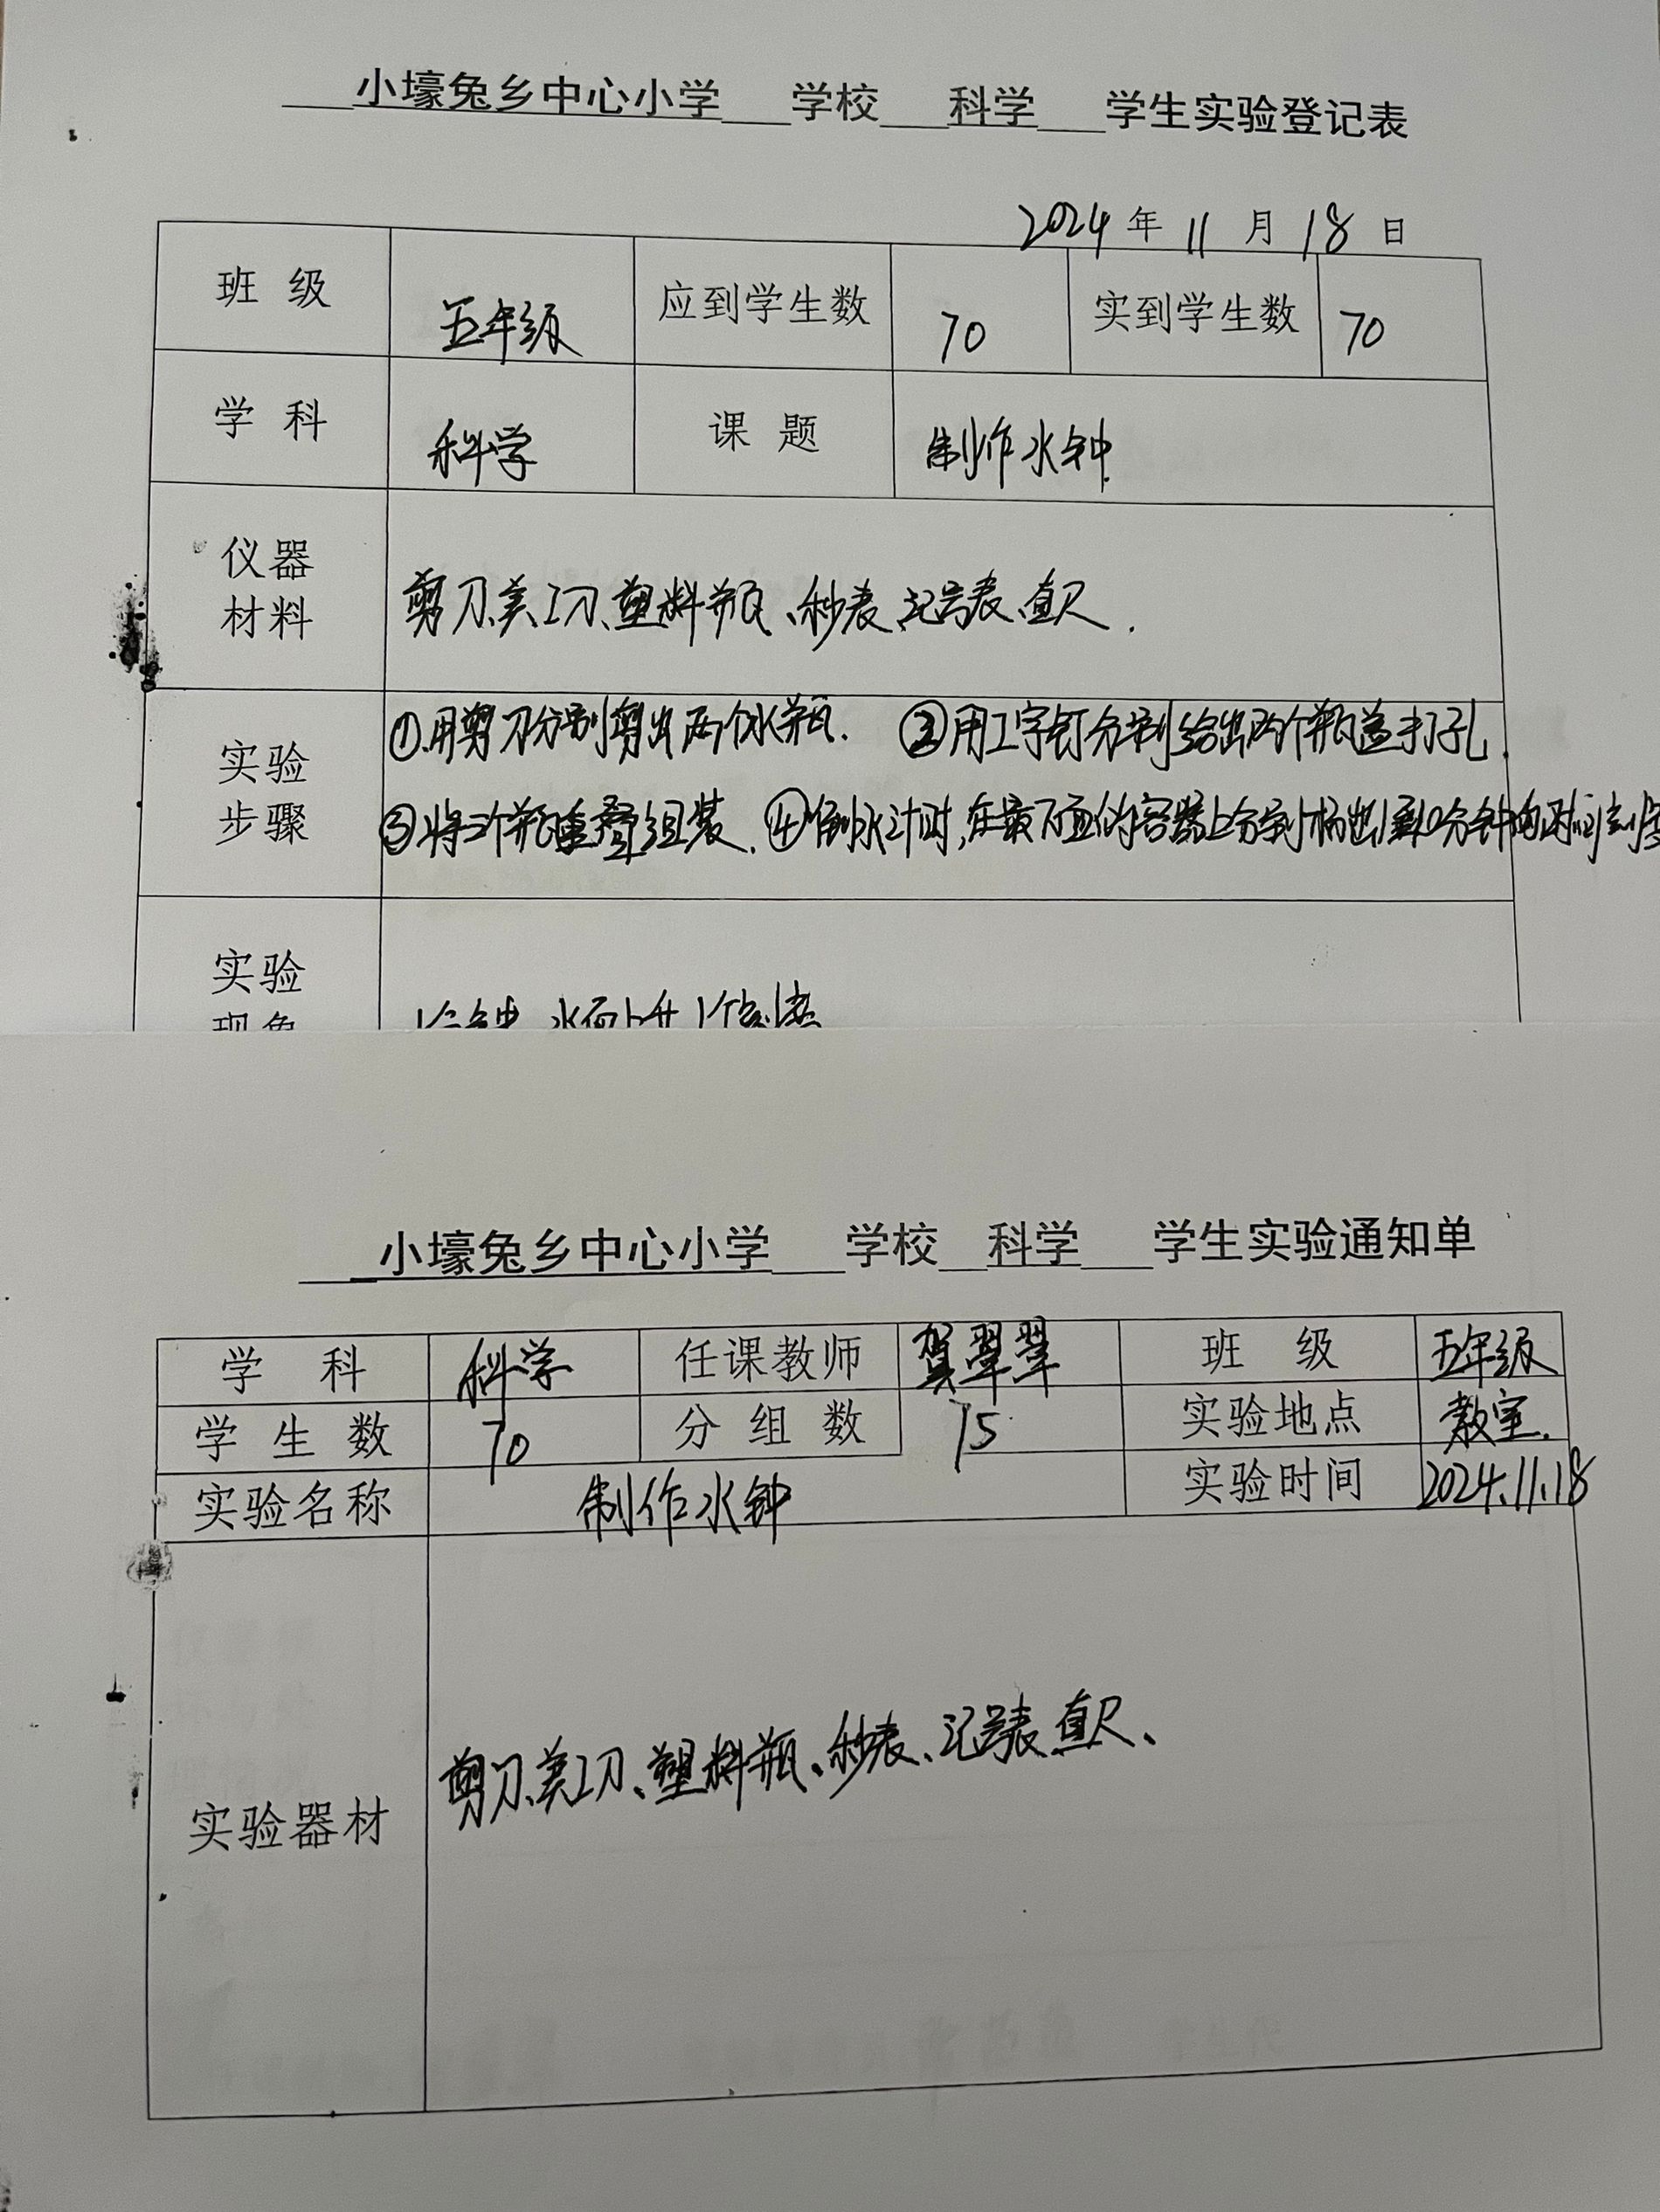 小壕兔乡中心小学 学校 科学 学生实验登记表
2024 年 11 月 18 日
班 级 五年级 应到学生数 70 实到学生数 70
学 科 科学 课 题 制作水钟
仪器
材料 剪刀、美工刀、塑料瓶、秒表、记号表、直尺.
实验
步骤
①.用剪刀分别剪出两个水瓶. ②用工字钉分别给出两个瓶盖打孔.
③将三个瓶重叠组装. ④倒水计时,在最下面的容器上分别标出1到10分钟的时间刻度
实验
现象
1分钟 水面上升1个刻度
小壕兔乡中心小学 学校 科学 学生实验通知单
学 科 科学 任课教师 贺翠翠 班 级 五年级
学 生 数 70 分 组 数 15 实验地点 教室.
实验名称 制作水钟 实验时间 2024.11.18
实验器材 剪刀、美工刀、塑料瓶、秒表、记号表、直尺、